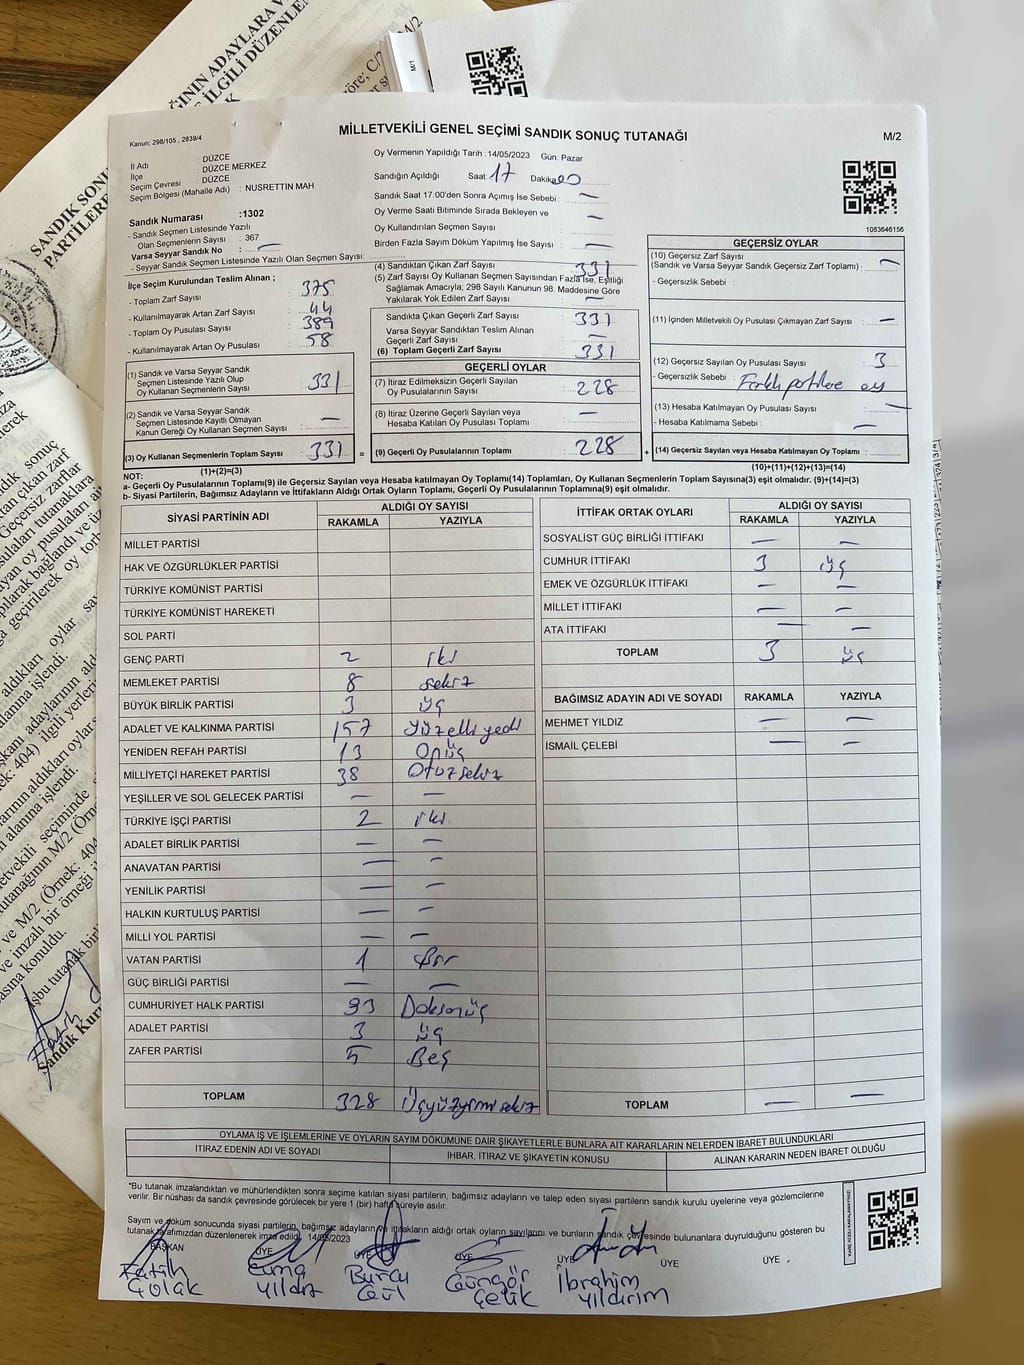 M/1
M/2
Kanun; 298/105 , 2839/4
MİLLETVEKİLİ GENEL SEÇİMİ SANDIK SONUÇ TUTANAĞI
M/2
İl Adı : DÜZCE
İlçe : DÜZCE MERKEZ
Seçim Çevresi : DÜZCE
Seçim Bölgesi (Mahalle Adı) : NUSRETTİN MAH.
Oy Vermenin Yapıldığı Tarih :14/05/2023 Gün: Pazar
Sandığın Açıldığı Saat: 17 Dakika: 00
Sandık Saat 17:00'den Sonra Açımış İse Sebebi : —
Oy Verme Saati Bitiminde Sırada Bekleyen ve
Oy Kullandırılan Seçmen Sayısı : —
Birden Fazla Sayım Döküm Yapılmış İse Sayısı : —
1083646156
Sandık Numarası :1302
- Sandık Seçmen Listesinde Yazılı
Olan Seçmenlerin Sayısı : 367
Varsa Seyyar Sandık No : —
- Seyyar Sandık Seçmen Listesinde Yazılı Olan Seçmen Sayısı:
İlçe Seçim Kurulundan Teslim Alınan ;
- Toplam Zarf Sayısı : 375
- Kullanılmayarak Artan Zarf Sayısı : 44
- Toplam Oy Pusulası Sayısı : 389
- Kullanılmayarak Artan Oy Pusulası : 58
(1) Sandık ve Varsa Seyyar Sandık
Seçmen Listesinde Yazılı Olup
Oy Kullanan Seçmenlerin Sayısı : 331
(2) Sandık ve Varsa Seyyar Sandık
Seçmen Listesinde Kayıtlı Olmayan
Kanun Gereği Oy Kullanan Seçmen Sayısı : —
(3) Oy Kullanan Seçmenlerin Toplam Sayısı : 331
(1)+(2)=(3)
(4) Sandıktan Çıkan Zarf Sayısı : 331
(5) Zarf Sayısı Oy Kullanan Seçmen Sayısından Fazla İse, Eşitliği
Sağlamak Amacıyla; 298 Sayılı Kanunun 98. Maddesine Göre
Yakılarak Yok Edilen Zarf Sayısı : —
Sandıkta Çıkan Geçerli Zarf Sayısı : 331
Varsa Seyyar Sandıktan Teslim Alınan
Geçerli Zarf Sayısı : —
(6) Toplam Geçerli Zarf Sayısı : 331
GEÇERLİ OYLAR
(7) İtiraz Edilmeksizin Geçerli Sayılan
Oy Pusulalarının Sayısı : 228
(8) İtiraz Üzerine Geçerli Sayılan veya
Hesaba Katılan Oy Pusulası Toplamı : —
= (9) Geçerli Oy Pusulalarının Toplamı : 228 +
GEÇERSİZ OYLAR
(10) Geçersiz Zarf Sayısı
(Sandık ve Varsa Seyyar Sandık Geçersiz Zarf Toplamı) : —
- Geçersizlik Sebebi :
(11) İçinden Milletvekili Oy Pusulası Çıkmayan Zarf Sayısı : —
(12) Geçersiz Sayılan Oy Pusulası Sayısı : 3
- Geçersizlik Sebebi : Farklı partilere oy
(13) Hesaba Katılmayan Oy Pusulası Sayısı : —
- Hesaba Katılmama Sebebi : —
(14) Geçersiz Sayılan veya Hesaba Katılmayan Oy Toplamı :
(10)+(11)+(12)+(13)=(14)
NOT:
a- Geçerli Oy Pusulalarının Toplamı(9) ile Geçersiz Sayılan veya Hesaba katılmayan Oy Toplamı(14) Toplamları, Oy Kullanan Seçmenlerin Toplam Sayısına(3) eşit olmalıdır. (9)+(14)=(3)
b- Siyasi Partilerin, Bağımsız Adayların ve İttifakların Aldığı Ortak Oyların Toplamı, Geçerli Oy Pusulalarının Toplamına(9) eşit olmalıdır.
SİYASİ PARTİNİN ADI ALDIĞI OY SAYISI
RAKAMLA YAZIYLA
MİLLET PARTİSİ
HAK VE ÖZGÜRLÜKLER PARTİSİ
TÜRKİYE KOMÜNİST PARTİSİ
TÜRKİYE KOMÜNİST HAREKETİ
SOL PARTİ
GENÇ PARTİ 2 iki
MEMLEKET PARTİSİ 8 sekiz
BÜYÜK BİRLİK PARTİSİ 3 üç
ADALET VE KALKINMA PARTİSİ 157 yüzelli yedi
YENİDEN REFAH PARTİSİ 13 Onüç
MİLLİYETÇİ HAREKET PARTİSİ 38 Otuz sekiz
YEŞİLLER VE SOL GELECEK PARTİSİ — —
TÜRKİYE İŞÇİ PARTİSİ 2 iki
ADALET BİRLİK PARTİSİ — —
ANAVATAN PARTİSİ — —
YENİLİK PARTİSİ — —
HALKIN KURTULUŞ PARTİSİ — —
MİLLİ YOL PARTİSİ — —
VATAN PARTİSİ 1 Bir
GÜÇ BİRLİĞİ PARTİSİ — —
CUMHURİYET HALK PARTİSİ 93 Doksanüç
ADALET PARTİSİ 3 üç
ZAFER PARTİSİ 5 Beş
TOPLAM 328 Üçyüzyirmi sekiz
İTTİFAK ORTAK OYLARI ALDIĞI OY SAYISI
RAKAMLA YAZIYLA
SOSYALİST GÜÇ BİRLİĞİ İTTİFAKI — —
CUMHUR İTTİFAKI 3 üç
EMEK VE ÖZGÜRLÜK İTTİFAKI — —
MİLLET İTTİFAKI — —
ATA İTTİFAKI — —
TOPLAM 3 üç
BAĞIMSIZ ADAYIN ADI VE SOYADI RAKAMLA YAZIYLA
MEHMET YILDIZ — —
İSMAİL ÇELEBİ — —
TOPLAM — —
OYLAMA İŞ VE İŞLEMLERİNE VE OYLARIN SAYIM DÖKÜMÜNE DAİR ŞİKAYETLERLE BUNLARA AİT KARARLARIN NELERDEN İBARET BULUNDUKLARI
İTİRAZ EDENİN ADI VE SOYADI İHBAR, İTİRAZ VE ŞİKAYETİN KONUSU ALINAN KARARIN NEDEN İBARET OLDUĞU
"Bu tutanak imzalandıktan ve mühürlendikten sonra seçime katılan siyasi partilerin, bağımsız adayların ve talep eden siyasi partilerin sandık kurulu üyelerine veya gözlemcilerine
verilir. Bir nüshası da sandık çevresinde görülecek bir yere 1 (bir) hafta süreyle asılır.
Sayım ve döküm sonucunda siyasi partilerin, bağımsız adayların ve ittifakların aldığı ortak oyların sayılarını ve bunların sandık çevresinde bulunanlara duyrulduğunu gösteren bu
tutanak tarafımızdan düzenlenerek imza edildi. 14/05/2023
BAŞKAN ÜYE ÜYE ÜYE ÜYE ÜYE ÜYE
Fatih Çolak
Yıldız
Burcu Gül
Güngör Çelik
İbrahim Yıldırım